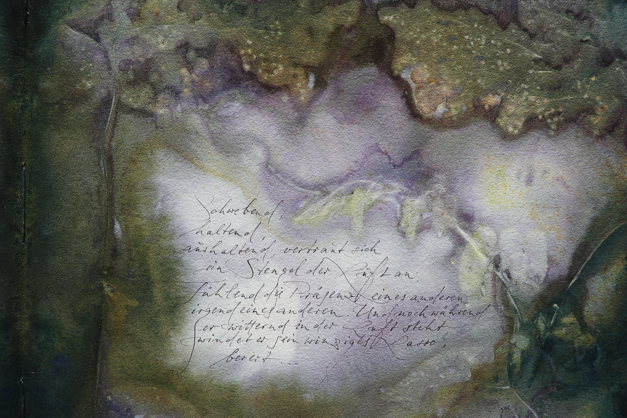 Schwebend,
haltend,
aushaltend, vertraut sich
ein Stengel der Luft an
fühlend die Präsenz eines anderen
irgend eines anderen Und noch während
er witternd in der Luft steht
windet er sein winziges Lasso,
bereit...